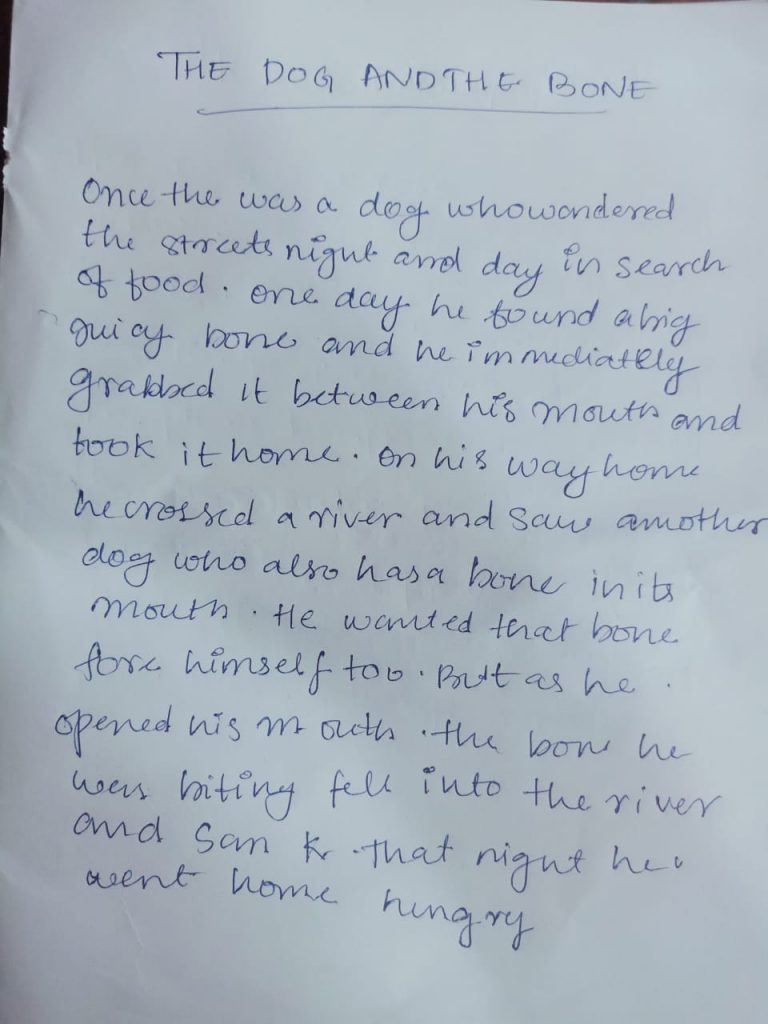 THE DOG ANDTHE BONE
Once the was a dog whowondered
the streets night and day in search
of food. one day he found a big
juicy bone and he immediatlely
grabbed it between his mouth and
took it home. on his way home
he crossed a river and saw amother
dog who also has a bone in its
mouth. He wanted that bone
fore himself too. But as he.
opened his m outh. the bone he
was biting fell into the river
and san k. that night he
went home hungry